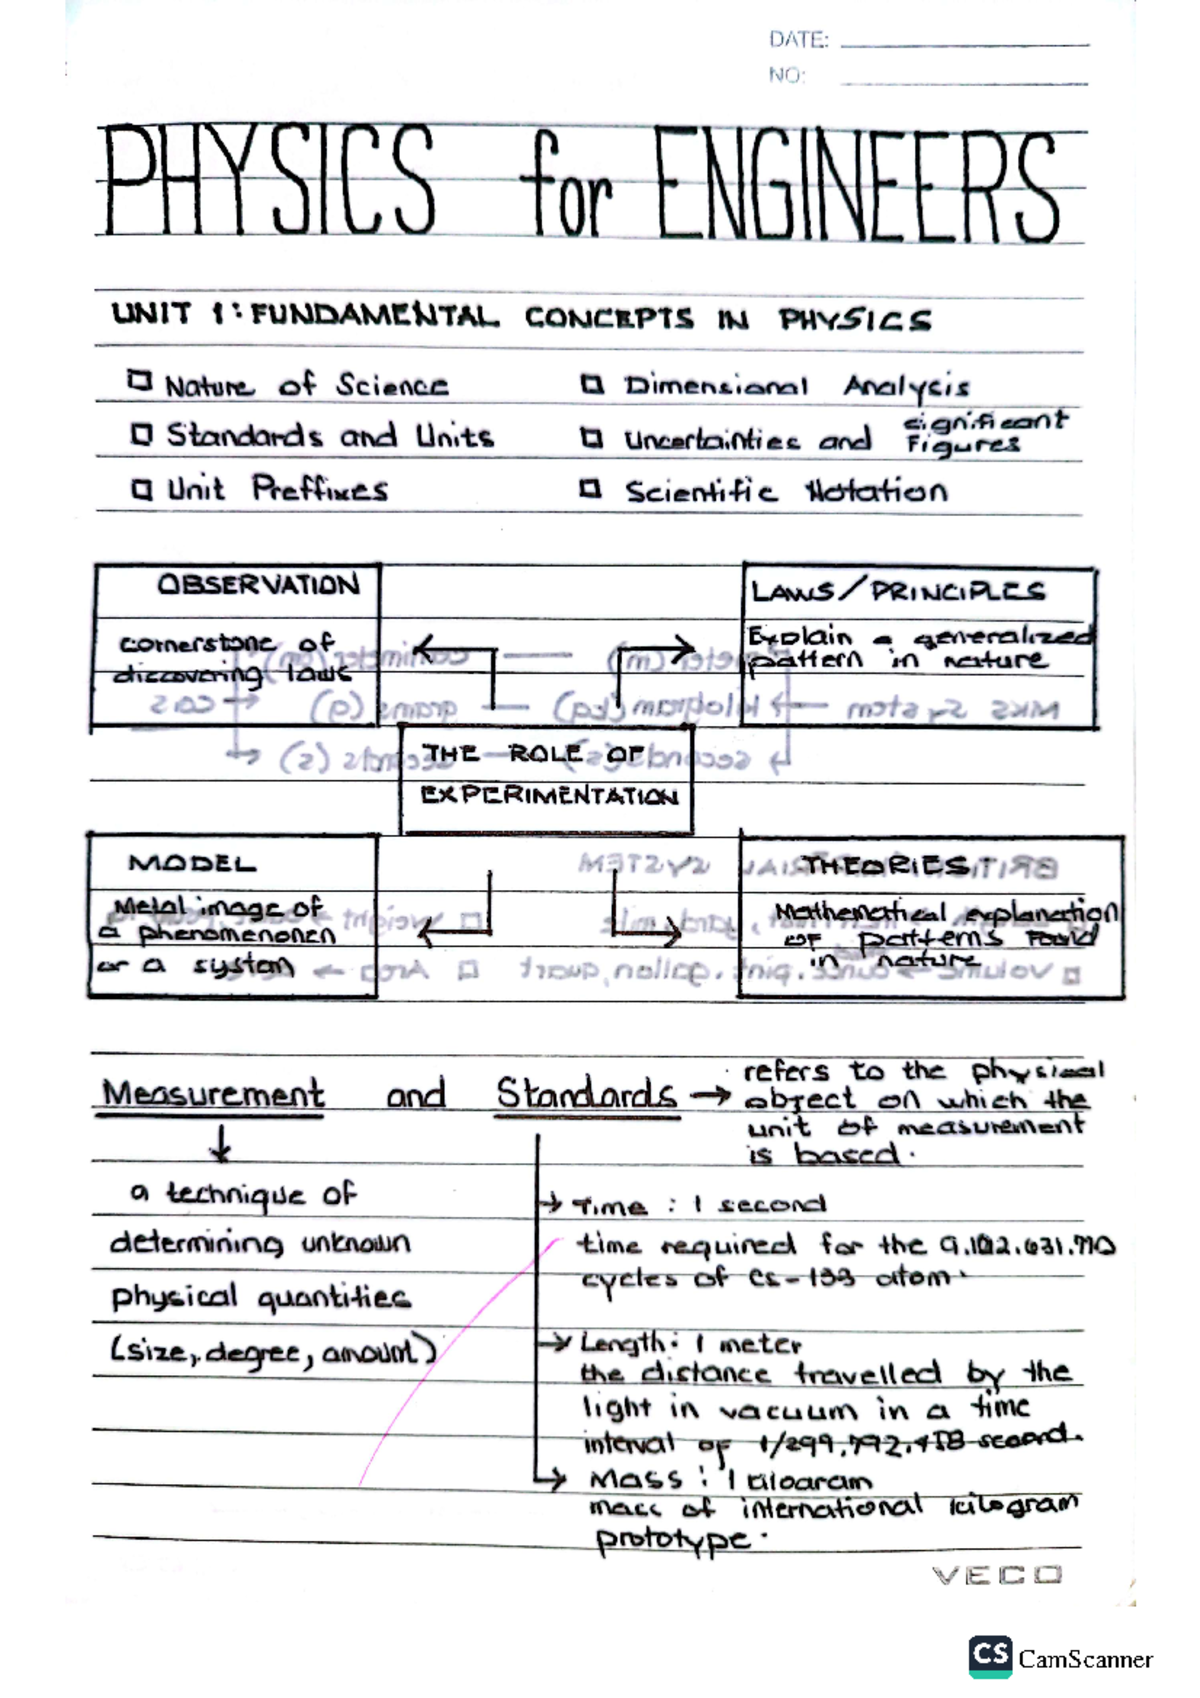 DATE:
NO:
PHYSICS for ENGINEERS
UNIT 1: FUNDAMENTAL CONCEPTS IN PHYSICS
Nature of Science
Dimensional Analysis
Standards and Units
Uncertainties and significant Figures
Unit Preffixes
Scientific Notation
OBSERVATION
cornerstone of
discovering laws
LAWS/PRINCIPLES
Explain a generalized
pattern in nature
THE ROLE OF
EXPERIMENTATION
MODEL
Metal image of
a phenomenonen
or a system
THEORIES
Mathematical explanation
of patterns found
in nature
Measurement and Standards →
refers to the physical
object on which the
unit of measurement
is based.
a technique of
determining unknown
physical quantities
(size, degree, amount)
→ Time : 1 second
time required for the
cycles of Cs-133 atom.
→ Length: 1 meter
the distance travelled by the
light in vacuum in a time
interval of 1/299,792,458 second.
→ Mass : 1 kilogram
mass of international kilogram
prototype.
VECO
CS CamScanner